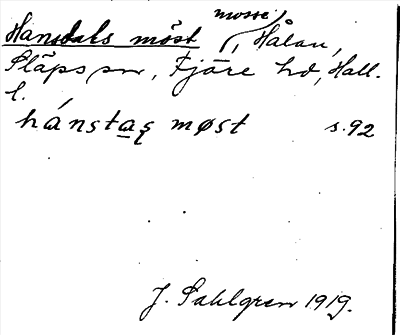 Hansdals möst mosse, Hålan,
Släps sn, Fjäre hd, Hall.
l.
hánstas møst s. 92
J. Sahlgren 1919.